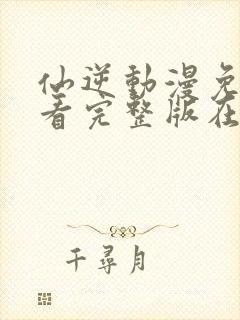 仙逆動漫免
看完整版在
千尋月